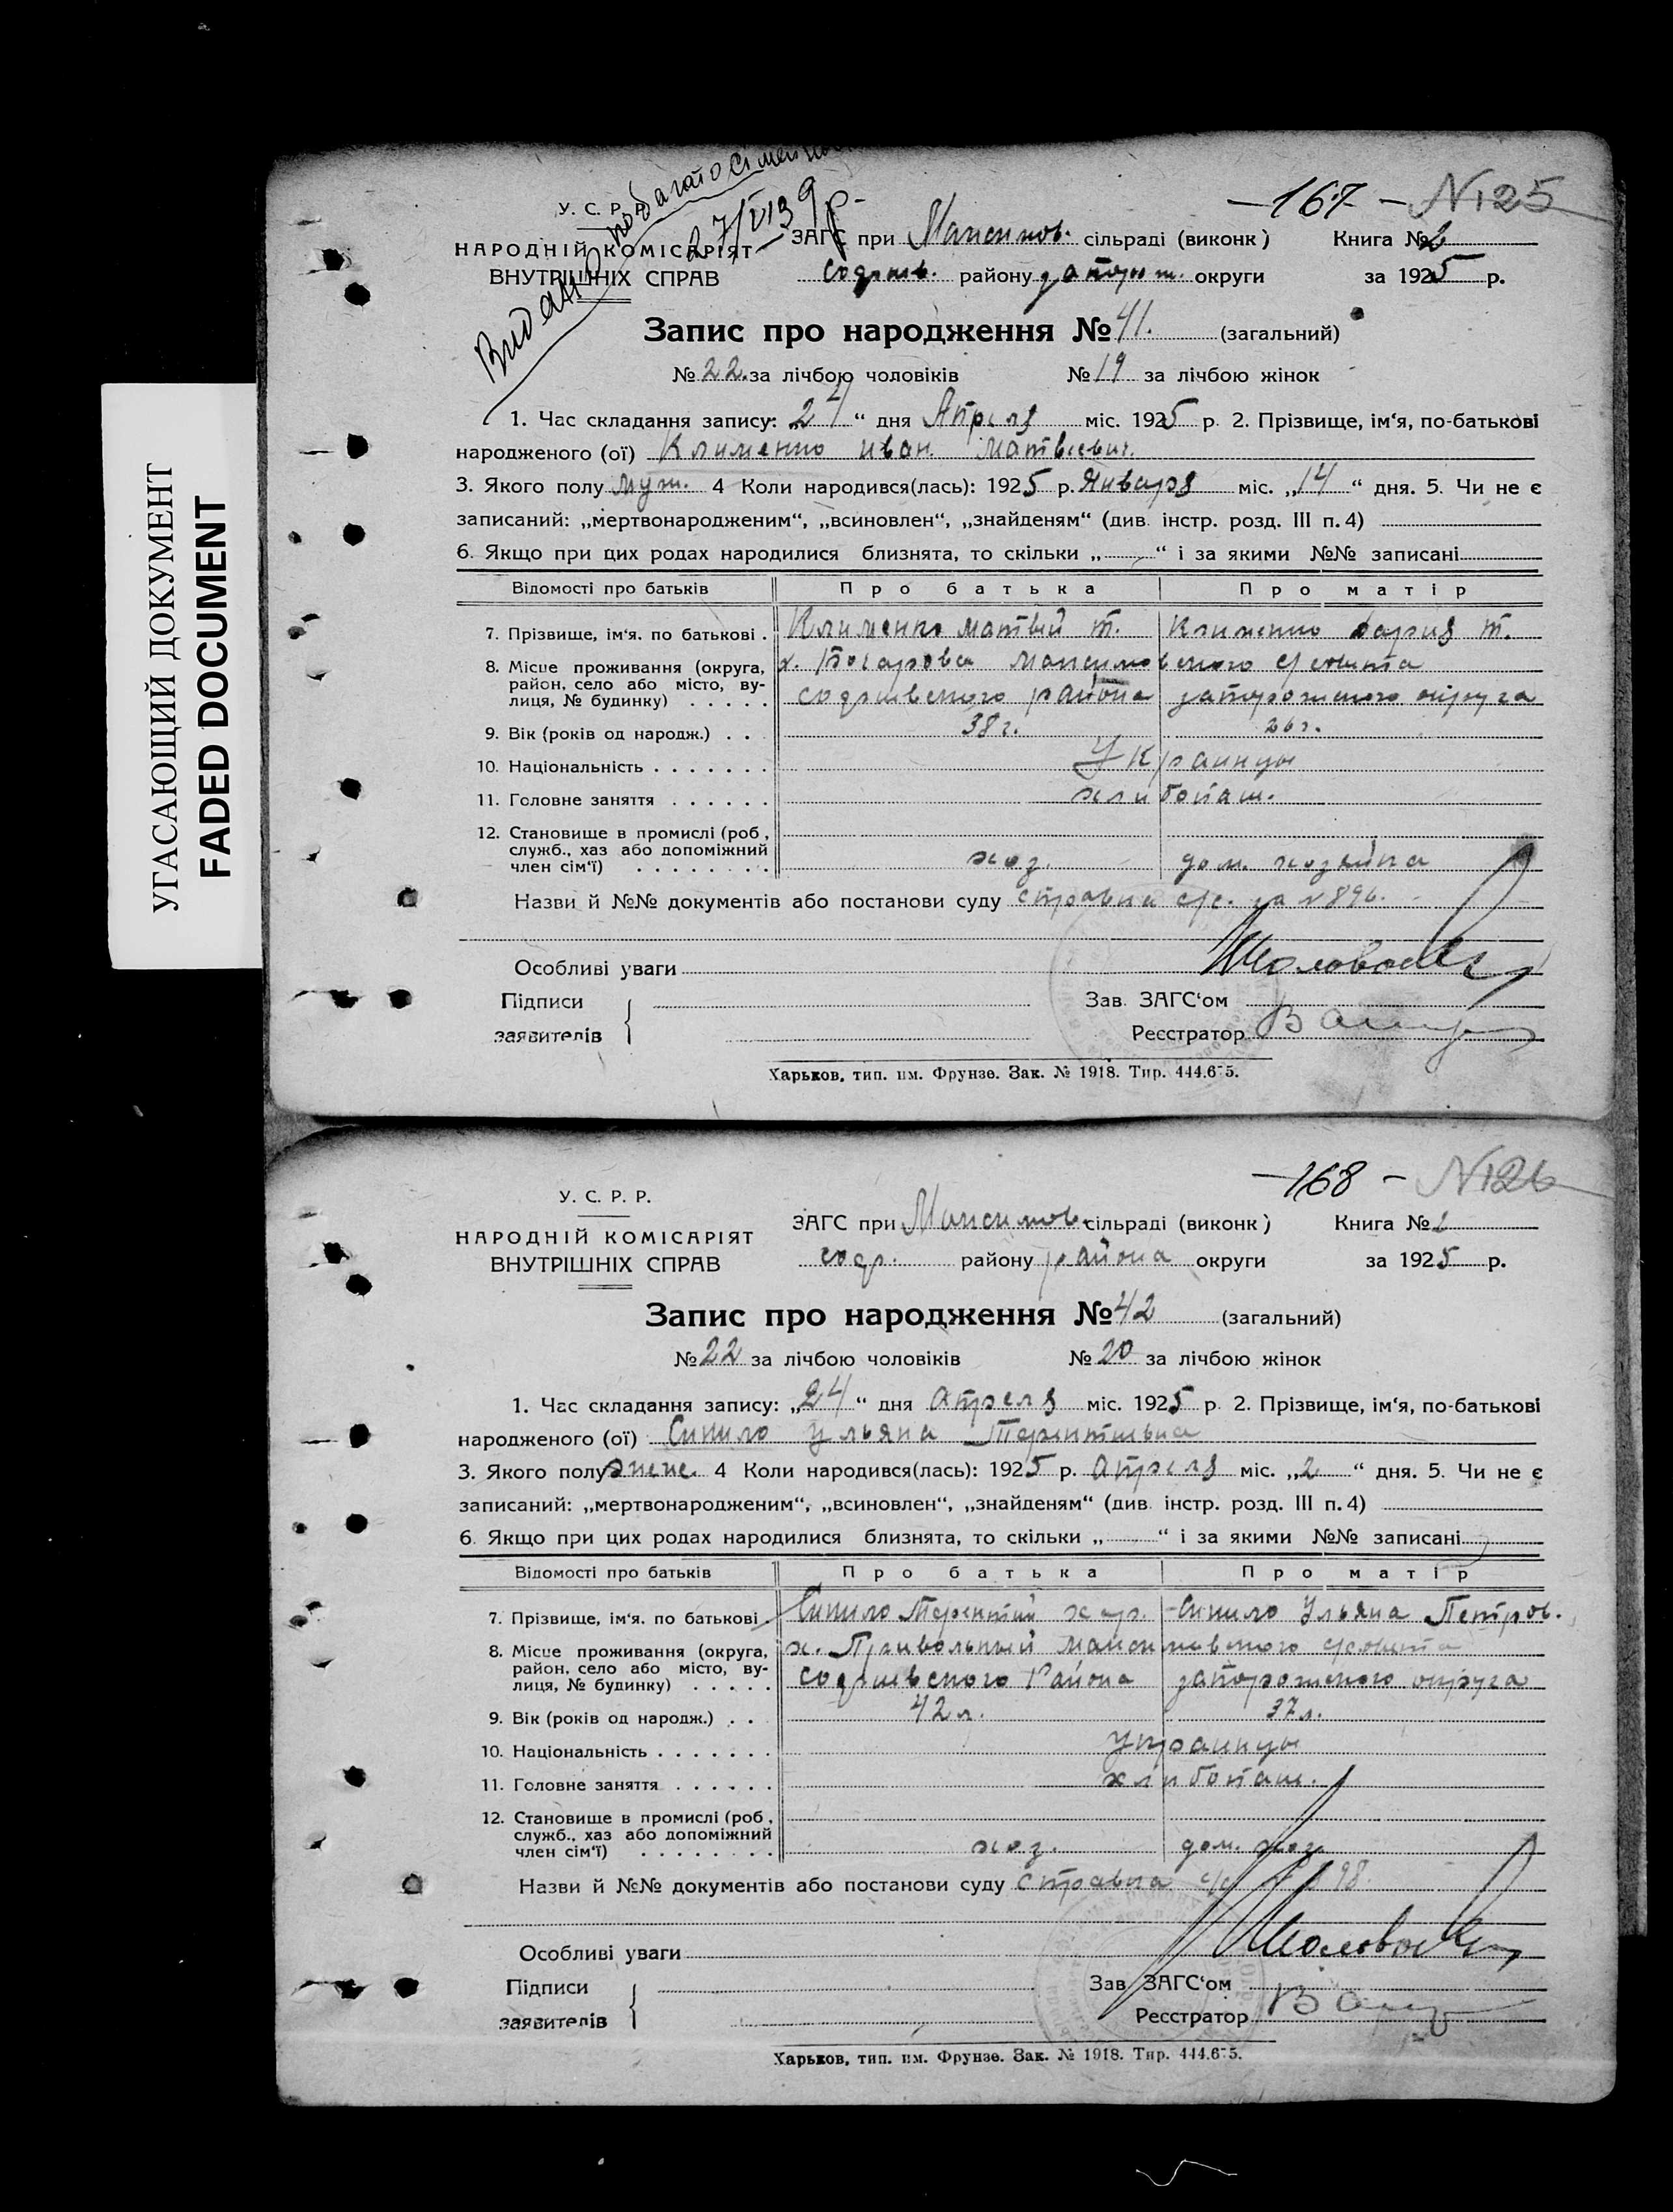 УГАСАЮЩИЙ ДОКУМЕНТ
FADED DOCUMENT
Видано по багатосімейнос
27/VI 39 р-
-167- N125
У. С. Р. Р.
НАРОДНІЙ КОМІСАРІЯТ
ВНУТРІШНІХ СПРАВ
ЗАГС при Максимов. сільраді (виконк) Книга № 2
софиев. району запорож. округи за 1925 р.
Запис про народження № 41. (загальний)
№ 22. за лічбою чоловіків № 19 за лічбою жінок
1. Час складання запису: „24“ дня Апреля міс. 1925 р. 2. Прізвище, ім‘я, по-батькові
народженого (ої) Клименко Иван Матвеевич.
3. Якого полу муж. 4 Коли народився(лась): 1925 р. Января міс. „14“ дня. 5. Чи не є
записаний: „мертвонародженим“, „всиновлен“, „знайденям“ (див. інстр. розд. III п. 4)
6. Якщо при цих родах народилися близнята, то скільки „ “ і за якими №№ записані
Відомості про батьків Про батька Про матір
7. Прізвище, ім‘я. по батькові . Клименко Матвий Т. Клименко Дария Т.
8. Місце проживання (округа, район, село або місто, вулиця, № будинку) . . . . . х. Максимовского с/совита
софиевского района запорожского округа
9. Вік (років од народж.) . . 38 г. 26 г.
10. Національність . . . . . . . Украинцы
11. Головне заняття . . . . . . хлибопаш.
12. Становище в промислі (роб., служб., хаз або допоміжний член сім‘ї) . . . . . . . . хоз. дом. хозяйка
Назви й №№ документів або постанови суду справка с/с. за № 896.
Особливі уваги
Підписи заявителів
Зав. ЗАГС‘ом
Реєстратор
Харьков, тип. им. Фрунзе. Зак. № 1918. Тир. 444.675.
-168- N126
У. С. Р. Р.
НАРОДНІЙ КОМІСАРІЯТ
ВНУТРІШНІХ СПРАВ
ЗАГС при Максимов. сільраді (виконк) Книга № 2
соф. району района округи за 1925 р.
Запис про народження № 42 (загальний)
№ 22 за лічбою чоловіків № 20 за лічбою жінок
1. Час складання запису: „24“ дня Апреля міс. 1925 р. 2. Прізвище, ім‘я, по-батькові
народженого (ої) Синило Ульяна Терентиевна
3. Якого полу женс. 4 Коли народився(лась): 1925 р. Апреля міс. „2“ дня. 5. Чи не є
записаний: „мертвонародженим“, „всиновлен“, „знайденям“ (див. інстр. розд. III п. 4)
6. Якщо при цих родах народилися близнята, то скільки „ “ і за якими №№ записані
Відомості про батьків Про батька Про матір
7. Прізвище, ім‘я. по батькові . Синило Терентий хар. Синило Ульяна Петров.
8. Місце проживання (округа, район, село або місто, вулиця, № будинку) . . . . . х. Привольный Максимовского с/совита
софиевского Района запорожского округа
9. Вік (років од народж.) . . 42 л. 37 л.
10. Національність . . . . . . . Украинцы
11. Головне заняття . . . . . . хлибопаш.
12. Становище в промислі (роб., служб., хаз або допоміжний член сім‘ї) . . . . . . . . хоз. дом. хоз.
Назви й №№ документів або постанови суду справка с/с 898.
Особливі уваги
Підписи заявителів
Зав. ЗАГС‘ом
Реєстратор
Харьков, тип. им. Фрунзе. Зак. № 1918. Тир. 444.675.